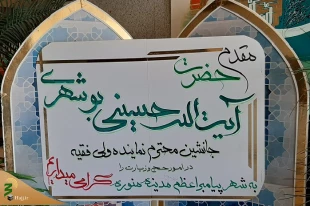 مقدم
حضرت
آیت الله حسینی بوشهری
جانشین محترم نماینده ولی فقیه
در امور حج و زیارت را
به شهر پیامبر اعظم مدینه منوره گرامی میداریم